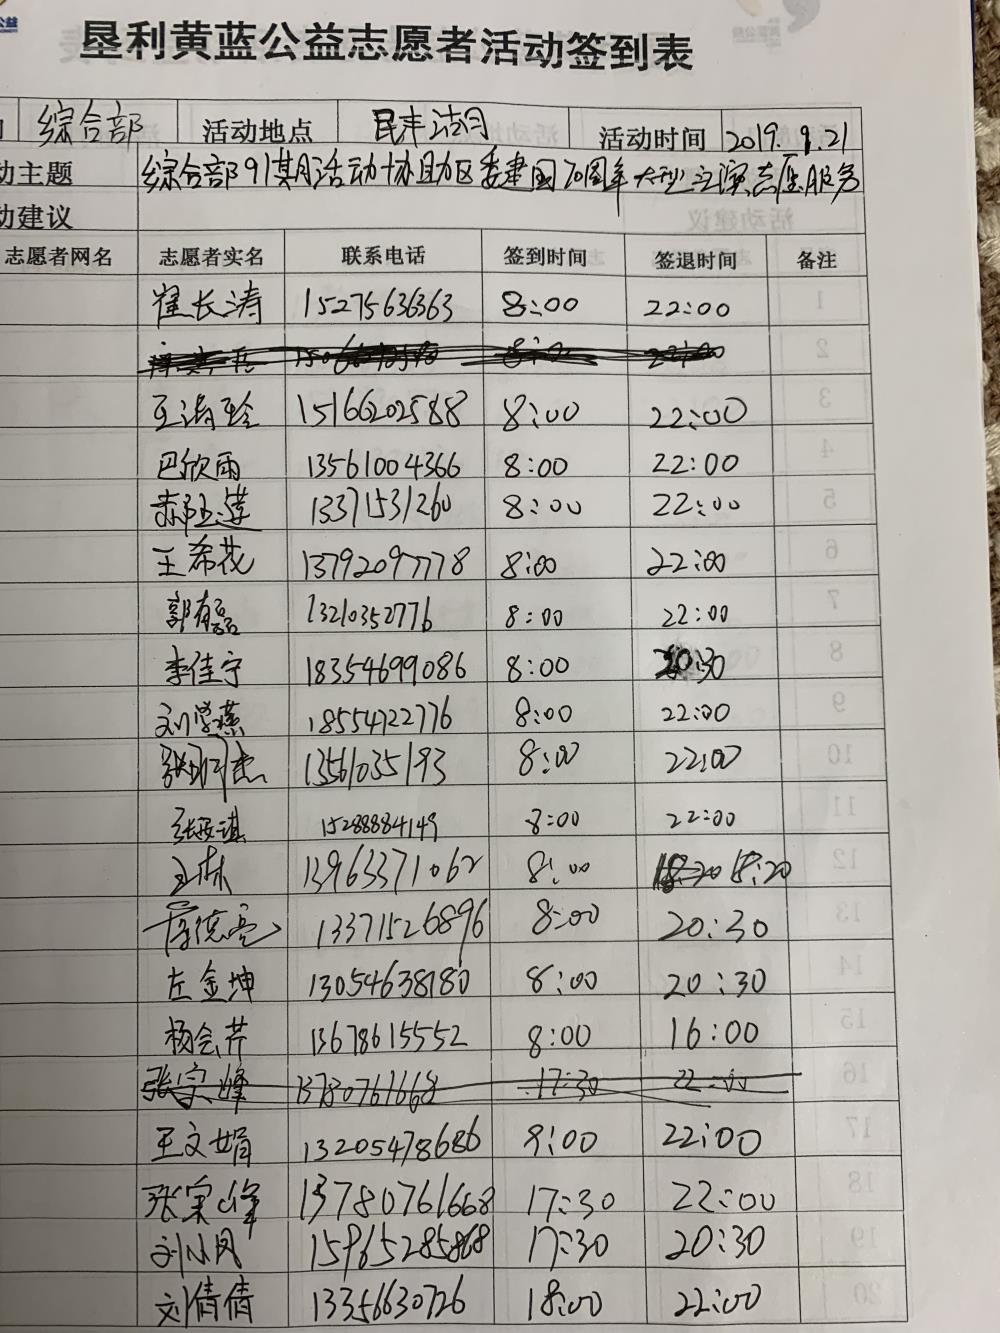 垦利黄蓝公益志愿者活动签到表
综合部 活动地点 民丰 活动时间 2019.9.21
动主题 综合部91期活动协助区委建国70周年大型 演志愿服务
动建议
志愿者网名 志愿者实名 联系电话 签到时间 签退时间 备注
崔长涛 15275636363 8:00 22:00
王 玲 15166202588 8:00 22:00
巴欣雨 13561004366 8:00 22:00
郝玉莲 13371531260 8:00 22:00
王希花 13792097778 8:00 22:00
郭有磊 13210352776 8:00 22:00
李佳宁 18354699086 8:00 20:30
刘学燕 18554722776 8:00 22:00
杰 13561035193 8:00 22:00
张 淇 15288884149 8:00 22:00
王林 13963371062 8:00 18:20
德亮 13371526896 8:00 20:30
左金坤 13054638180 8:00 20:30
杨会芹 13678615552 8:00 16:00
张宗峰 13780761668 17:30 22:00
王文娟 13205478686 9:00 22:00
张宗峰 13780761668 17:30 22:00
刘小凤 15965285868 17:30 20:30
刘倩倩 13356630726 18:00 22:00